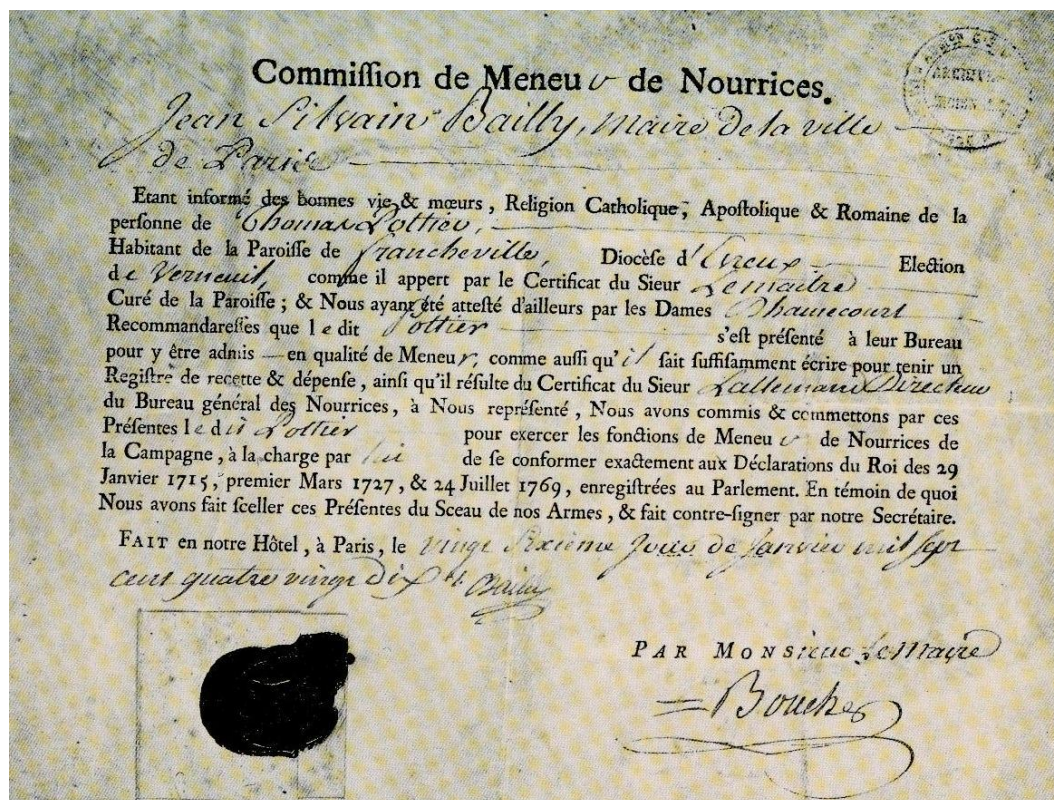 Commiſſion de Meneur de Nourrices.
Jean Silvain Bailly, Maire de la ville
de Paris
Etant informé des bonnes vie & mœurs, Religion Catholique, Apoſtolique & Romaine de la
perſonne de Thomas Pottier,
Habitant de la Paroiſſe de francheville, Diocèſe d'Evreux Election
de Verneuil, comme il appert par le Certificat du Sieur Lemaitre
Curé de la Paroiſſe ; & Nous ayant été atteſté d'ailleurs par les Dames
Recommandareſſes que ledit Pottier s'eſt préſenté à leur Bureau
pour y être admis en qualité de Meneur, comme auſſi qu'il fait ſuffiſamment écrire pour tenir un
Regiſtre de recette & dépenſe, ainſi qu'il réſulte du Certificat du Sieur Lallemand Directeur
du Bureau général des Nourrices, à Nous repréſenté, Nous avons commis & commettons par ces
Préſentes ledit Pottier pour exercer les fonctions de Meneur de Nourrices de
la Campagne, à la charge par lui de ſe conformer exactement aux Déclarations du Roi des 29
Janvier 1715, premier Mars 1727, & 24 Juillet 1769, enregiſtrées au Parlement. En témoin de quoi
Nous avons fait ſceller ces Préſentes du Sceau de nos Armes, & fait contre-ſigner par notre Secrétaire.
FAIT en notre Hôtel, à Paris, le vingt Sixième Jour de Janvier mil ſept
cent quatre vingt dix Bailly
PAR MONSieur Le Maire
Boucher